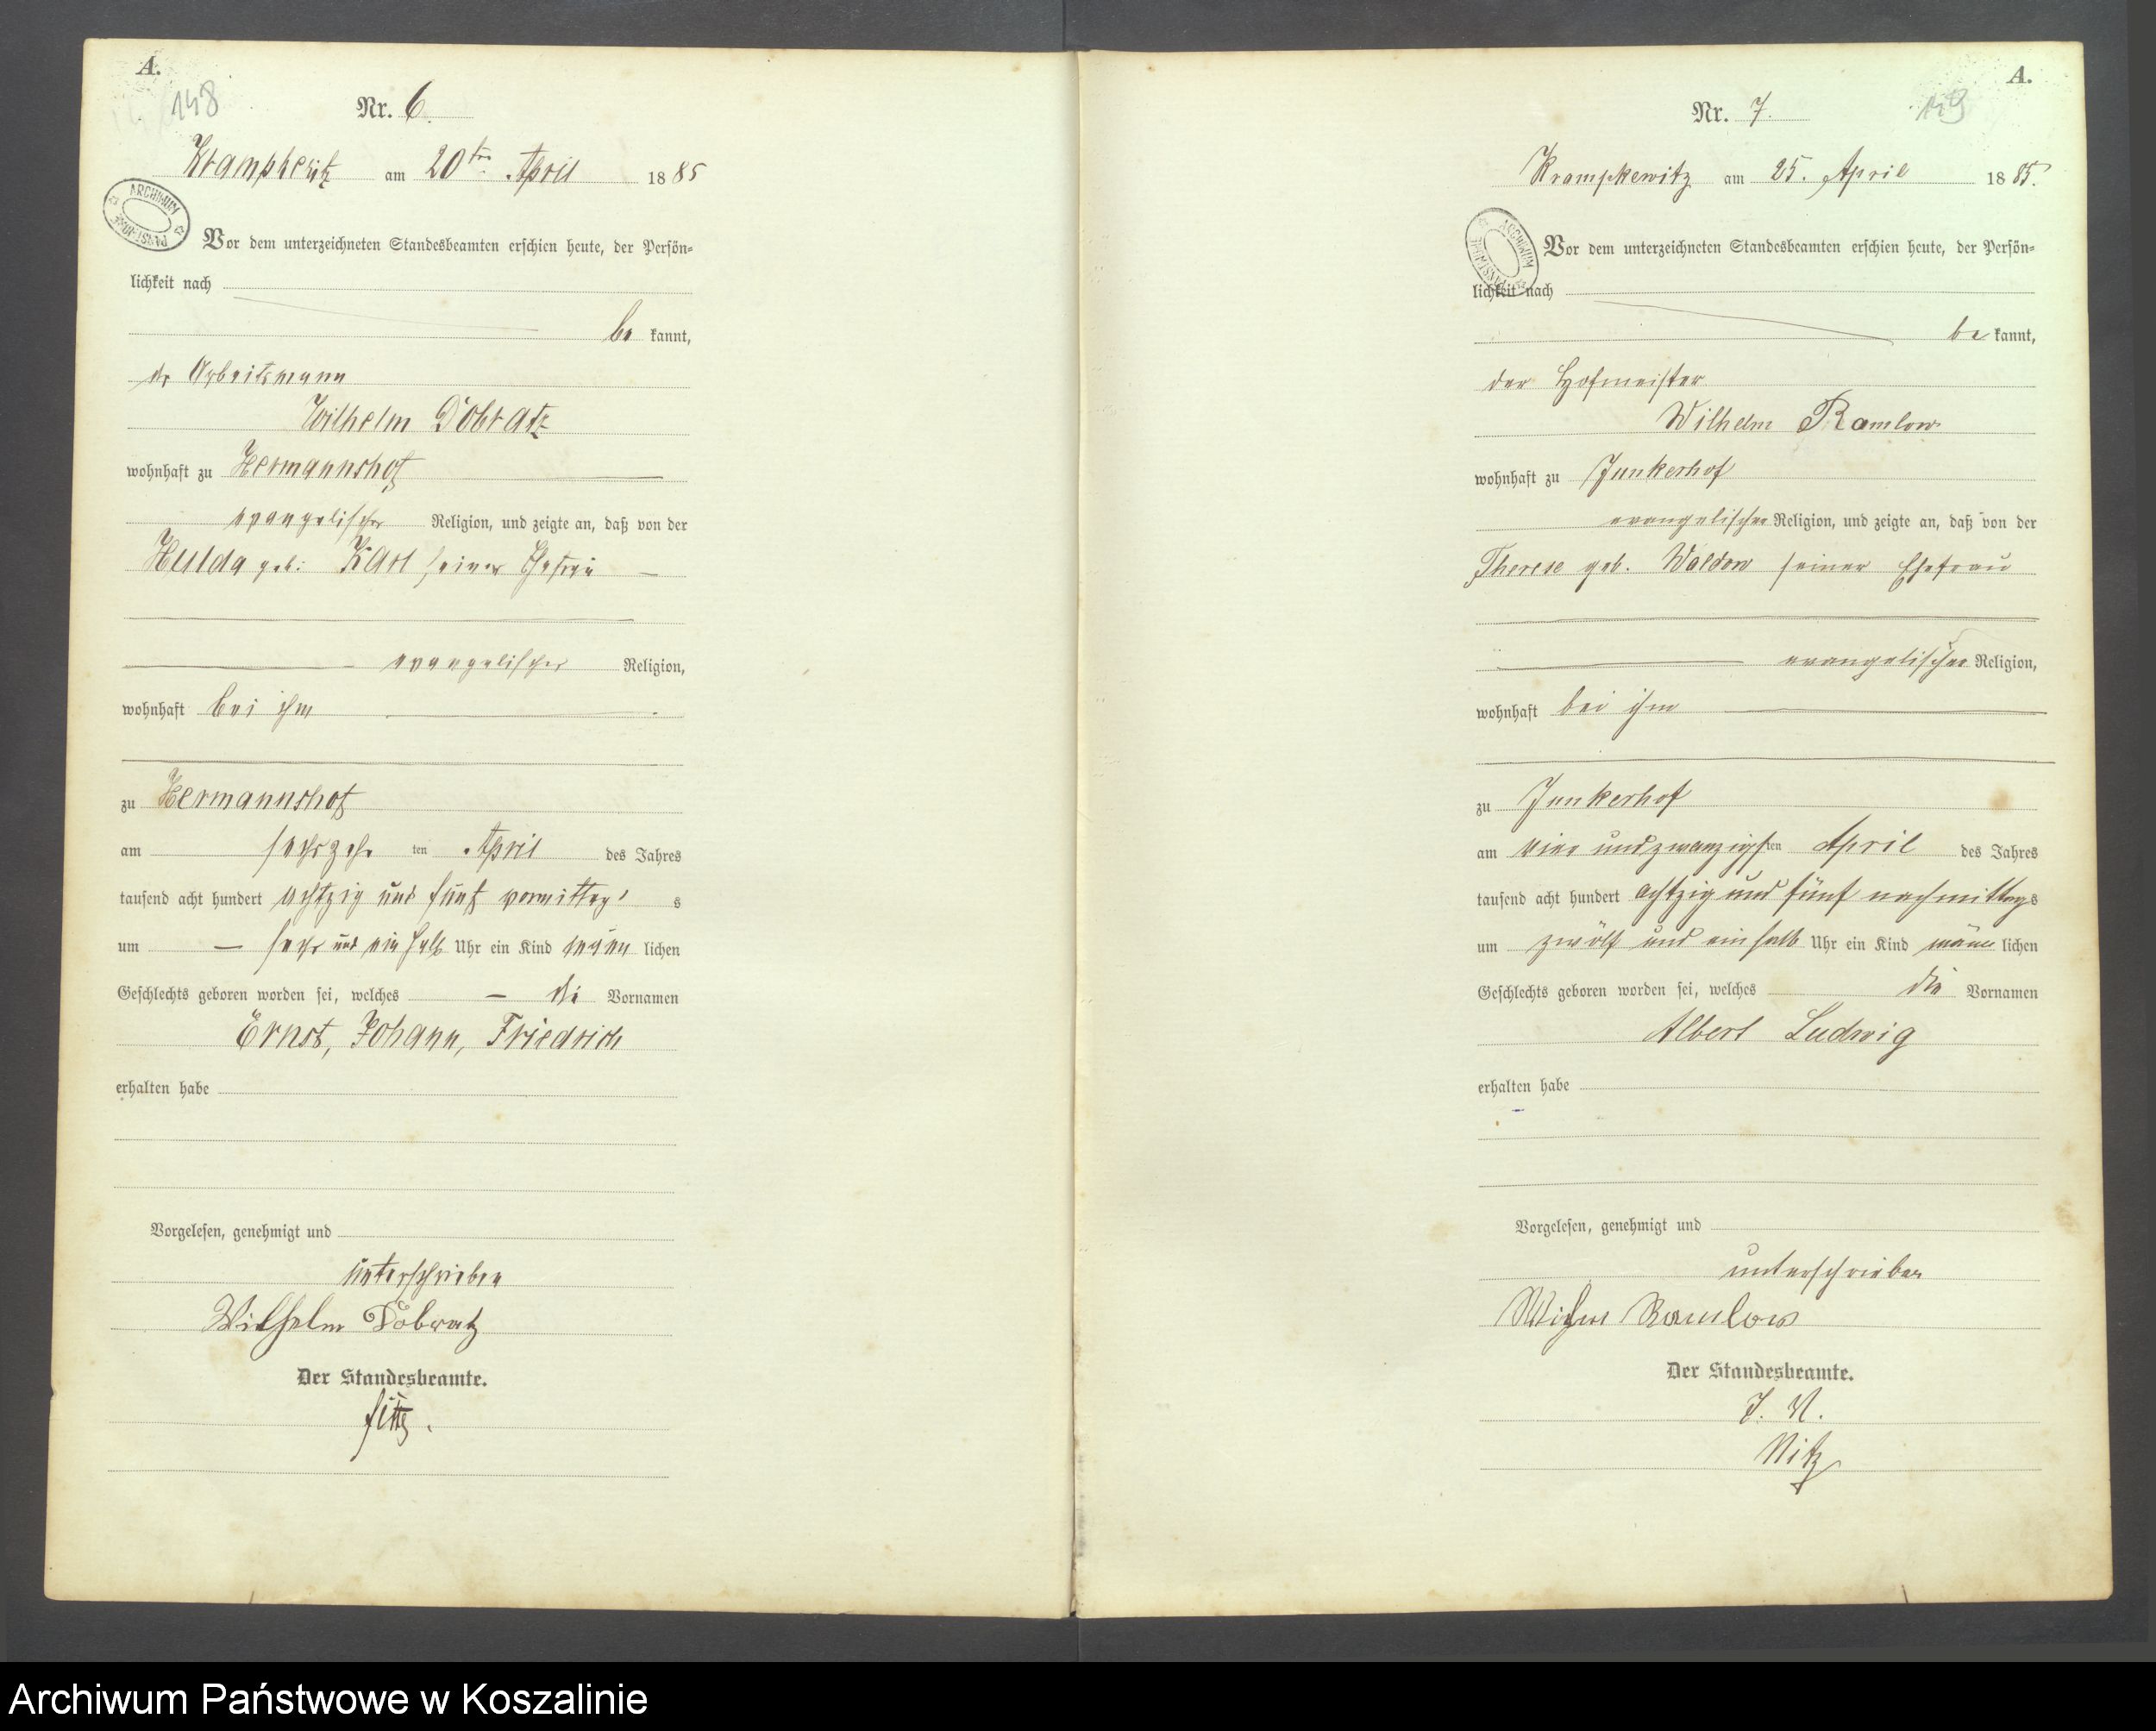 A.
148
Nr. 6.
Krampkewitz am 20ten April 1885
ARCHIWUM PAŃSTWOWE
Vor dem unterzeichneten Standesbeamten erschien heute, der Persön-
lichkeit nach
be kannt,
der Arbeitsmann
Wilhelm Dobratz
wohnhaft zu Hermannshof
evangelischer Religion, und zeigte an, daß von der
Hulda geb: Karl seiner Ehefrau
evangelischer Religion,
wohnhaft bei ihm
zu Hermannshof
am sechszehn ten April des Jahres
tausend acht hundert achtzig und fünf vormittag s
um sechs und ein halb Uhr ein Kind männ lichen
Geschlechts geboren worden sei, welches die Vornamen
Ernst, Johann, Friedrich
erhalten habe
Vorgelesen, genehmigt und
unterschrieben
Wilhelm Dobratz
Der Standesbeamte.
A.
149
Nr. 7.
Krampkewitz am 25. April 1885.
ARCHIWUM PAŃSTWOWE
Vor dem unterzeichneten Standesbeamten erschien heute, der Persön-
lichkeit nach
be kannt,
der Hofmeister
Wilhelm Ramlow
wohnhaft zu Junkerhof
evangelischer Religion, und zeigte an, daß von der
Therese geb. Waldow seiner Ehefrau
evangelischer Religion,
wohnhaft bei ihm
zu Junkerhof
am vier und zwanzigsten April des Jahres
tausend acht hundert achtzig und fünf nachmittags
um zwölf und ein halb Uhr ein Kind männ lichen
Geschlechts geboren worden sei, welches die Vornamen
Albert Ludwig
erhalten habe
Vorgelesen, genehmigt und
unterschrieben
Ramlow
Der Standesbeamte.
J. V.
Nitz
Archiwum Państwowe w Koszalinie